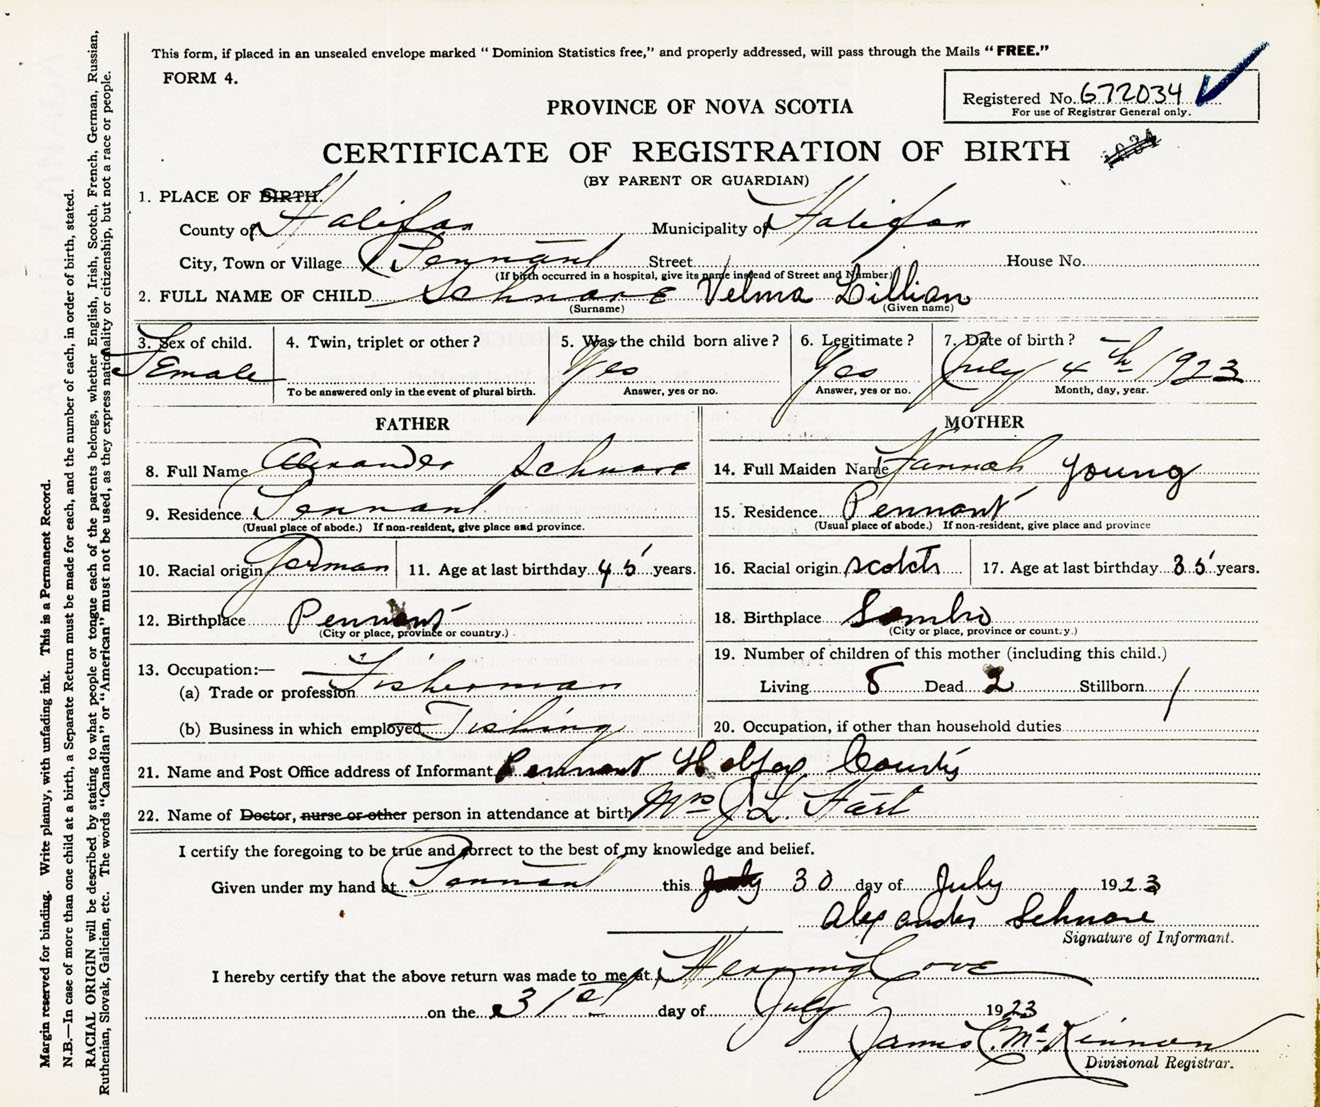 This form, if placed in an unsealed envelope marked "Dominion Statistics free," and properly addressed, will pass through the Mails "FREE."
FORM 4.
Registered No. 672034
For use of Registrar General only.
PROVINCE OF NOVA SCOTIA
CERTIFICATE OF REGISTRATION OF BIRTH
(BY PARENT OR GUARDIAN)
1. PLACE OF BIRTH.
County of Halifax Municipality of Halifax
City, Town or Village Pennant Street House No.
(If birth occurred in a hospital, give its name instead of Street and Number)
2. FULL NAME OF CHILD Schnare Velma Lillian
(Surname) (Given name)
3. Sex of child. 4. Twin, triplet or other? 5. Was the child born alive? 6. Legitimate? 7. Date of birth?
Female Yes Yes July 4th 1923
To be answered only in the event of plural birth. Answer, yes or no. Answer, yes or no. Month, day, year.
FATHER MOTHER
8. Full Name Alexander Schnare 14. Full Maiden Name Hannah Young
9. Residence Pennant 15. Residence Pennant
(Usual place of abode.) If non-resident, give place and province. (Usual place of abode.) If non-resident, give place and province
10. Racial origin German 11. Age at last birthday 45 years. 16. Racial origin scotch 17. Age at last birthday 35 years.
12. Birthplace Pennant 18. Birthplace Sambro
(City or place, province or country.) (City or place, province or county.)
13. Occupation:— 19. Number of children of this mother (including this child.)
(a) Trade or profession Fisherman Living 8 Dead 2 Stillborn 1
(b) Business in which employed Fishing 20. Occupation, if other than household duties
21. Name and Post Office address of Informant Pennant Halifax County
22. Name of Doctor, nurse or other person in attendance at birth Mrs J L. Hart
I certify the foregoing to be true and correct to the best of my knowledge and belief.
Given under my hand at Pennant this July 30 day of July 1923
Alexander Schnare
Signature of Informant.
I hereby certify that the above return was made to me at Herring Cove
on the 31st day of July 1923
James C. McKinnon
Divisional Registrar.
Margin reserved for binding. Write plainly, with unfading ink. This is a Permanent Record.
N.B.—In case of more than one child at a birth, a Separate Return must be made for each, and the number of each, in order of birth, stated.
RACIAL ORIGIN will be described by stating to what people or tongue each of the parents belongs, whether English, Irish, Scotch, French, German, Russian,
Ruthenian, Slovak, Galician, etc. The words "Canadian" or "American" must not be used, as they express nationality or citizenship, but not a race or people.